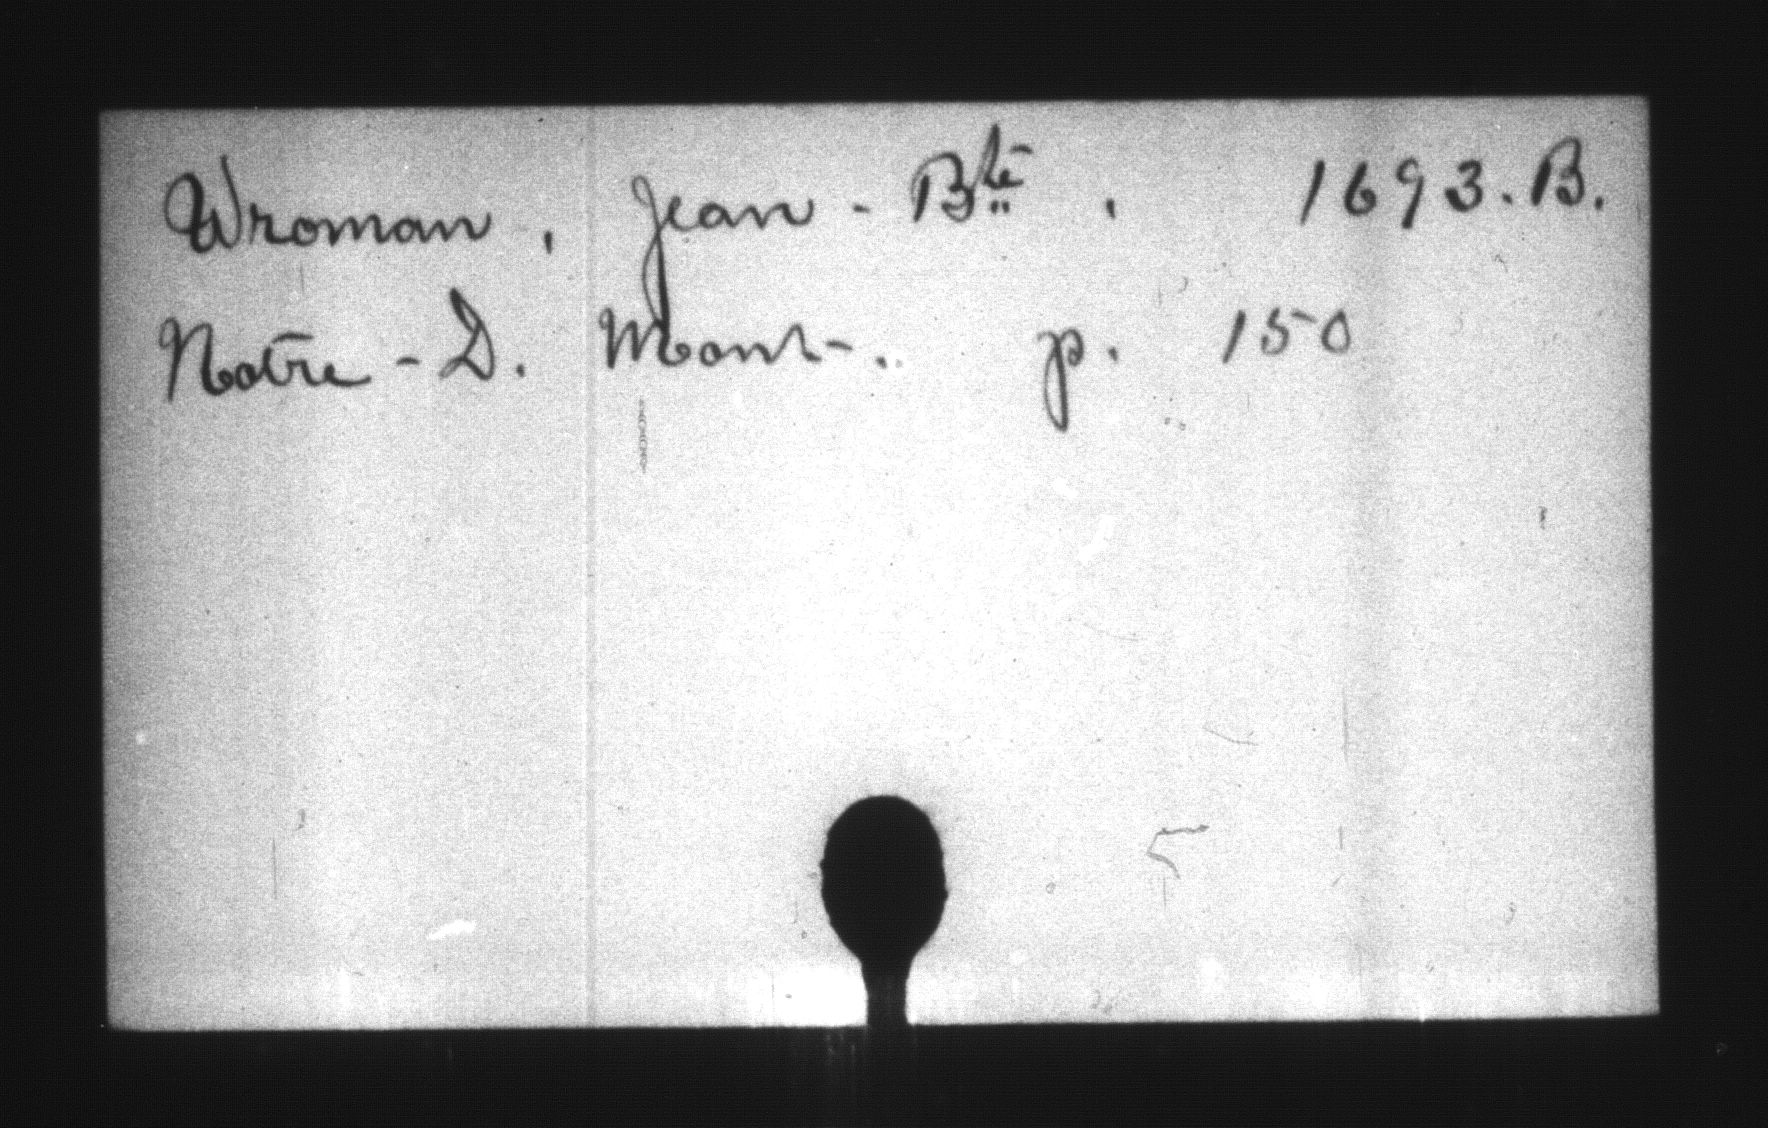 Wroman, Jean-Bte. 1693. B.
Notre-D. Mont-. p. 150